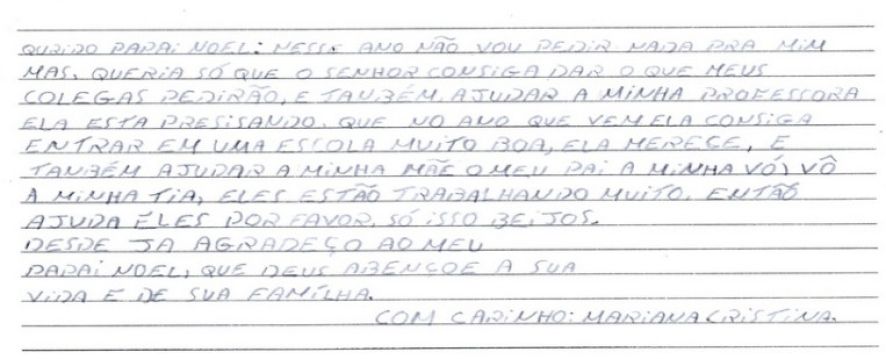 QUERIDO PAPAI NOEL: NESSE ANO NÃO VOU PEDIR NADA PRA MIM
MAS, QUERIA SÓ QUE O SENHOR CONSIGA DAR O QUE MEUS
COLEGAS PEDIRÃO, E TAUBÉM, AJUDAR A MINHA PROFESSORA
ELA ESTA PRESISANDO, QUE NO ANO QUE VEM ELA CONSIGA
ENTRAR EM UMA ESCOLA MUITO BOA, ELA MERECE, E
TANBÉM AJUDAR A MINHA MÃE O MEU PAI A MINHA VÓ, VÔ
A MINHA TIA, ELES ESTÃO TRABALHANDO MUITO. ENTÃO
AJUDA ELES POR FAVOR, SÓ ISSO BEIJOS.
DESDE JA AGRADEÇO AO MEU
PAPAI NOEL, QUE DEUS ABENÇOE A SUA
VIDA E DE SUA FAMÍLHA.
COM CARINHO: MARIANA CRISTINA.